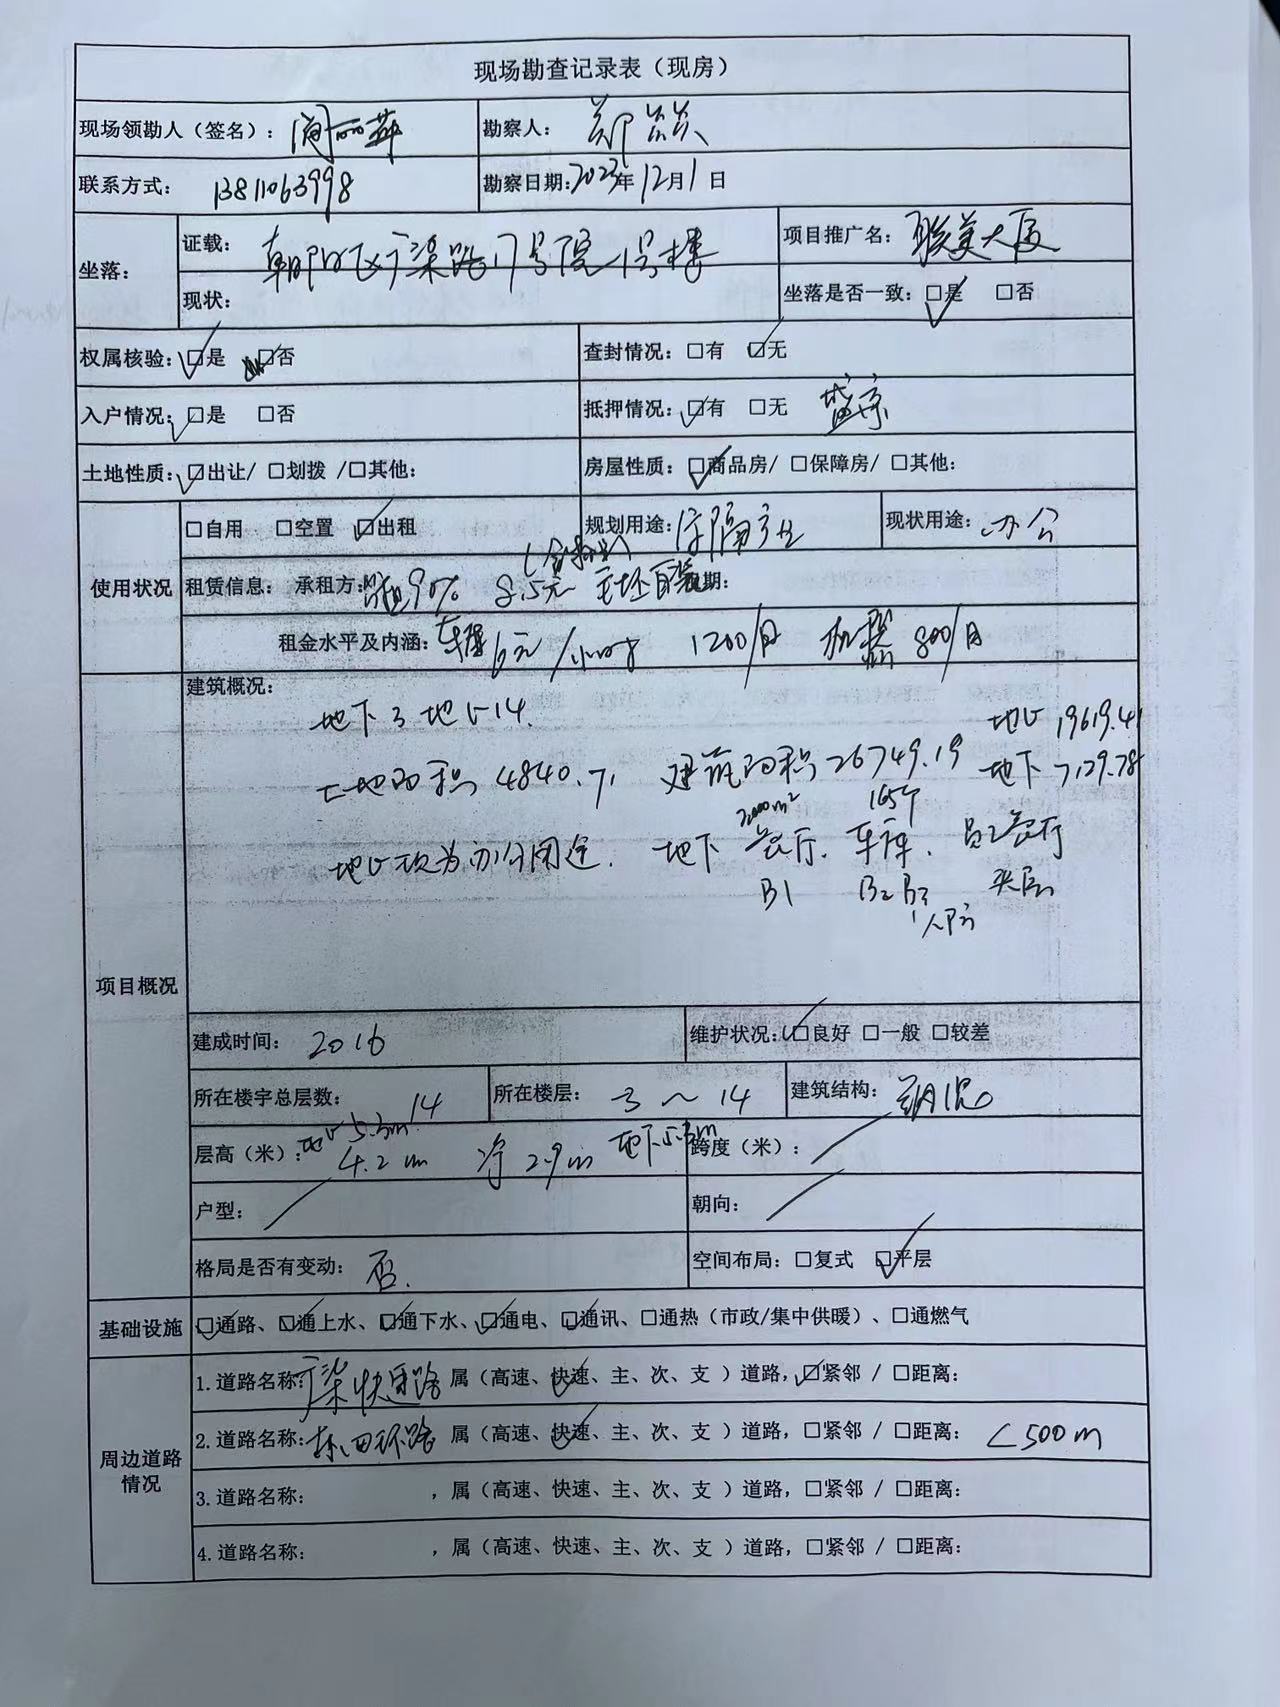 现场勘查记录表（现房）
现场领勘人（签名）： 阎丽萍 勘察人： 郑
联系方式： 13811063998 勘察日期：2023年12月1日
坐落： 证载： 朝阳区广渠路17号院1号楼 项目推广名：联美大厦
现状： 坐落是否一致：☑是 □否
权属核验：☑是 □否 查封情况：□有 ☑无
入户情况：☑是 □否 抵押情况：☑有 □无 盛京
土地性质：☑出让/ □划拨 /□其他： 房屋性质：☑商品房/ □保障房/ □其他：
使用状况 □自用 □空置 ☑出租 规划用途： 现状用途：办公
租赁信息： 承租方：出租90% 8.5元 毛坯 期：
租金水平及内涵： 车库 6元/小时 1200/月 机械 800/月
建筑概况：
地下3 地上14.
土地面积 4840.71 建筑面积 26749.19 地上 19619.41 地下 7129.78
地上现为办公用途. 地下 餐厅. 2000m² 车库. 165个 员工餐厅
B1 B2 B3 夹层
人防
项目概况
建成时间： 2016 维护状况：☑良好 □一般 □较差
所在楼宇总层数： 14 所在楼层： 3～14 建筑结构：钢混
层高（米）：地上5.3m 4.2m 净2.9m 地下 跨度（米）：
户型： 朝向：
格局是否有变动： 否. 空间布局：□复式 ☑平层
基础设施 ☑通路、☑通上水、☑通下水、☑通电、☑通讯、□通热（市政/集中供暖）、□通燃气
周边道路情况 1.道路名称：广渠快速路 属（高速、快速、主、次、支）道路，☑紧邻 / □距离：
2.道路名称：东四环路 属（高速、快速、主、次、支）道路，□紧邻 / □距离： <500m
3.道路名称： ，属（高速、快速、主、次、支）道路，□紧邻 / □距离：
4.道路名称： ，属（高速、快速、主、次、支）道路，□紧邻 / □距离：